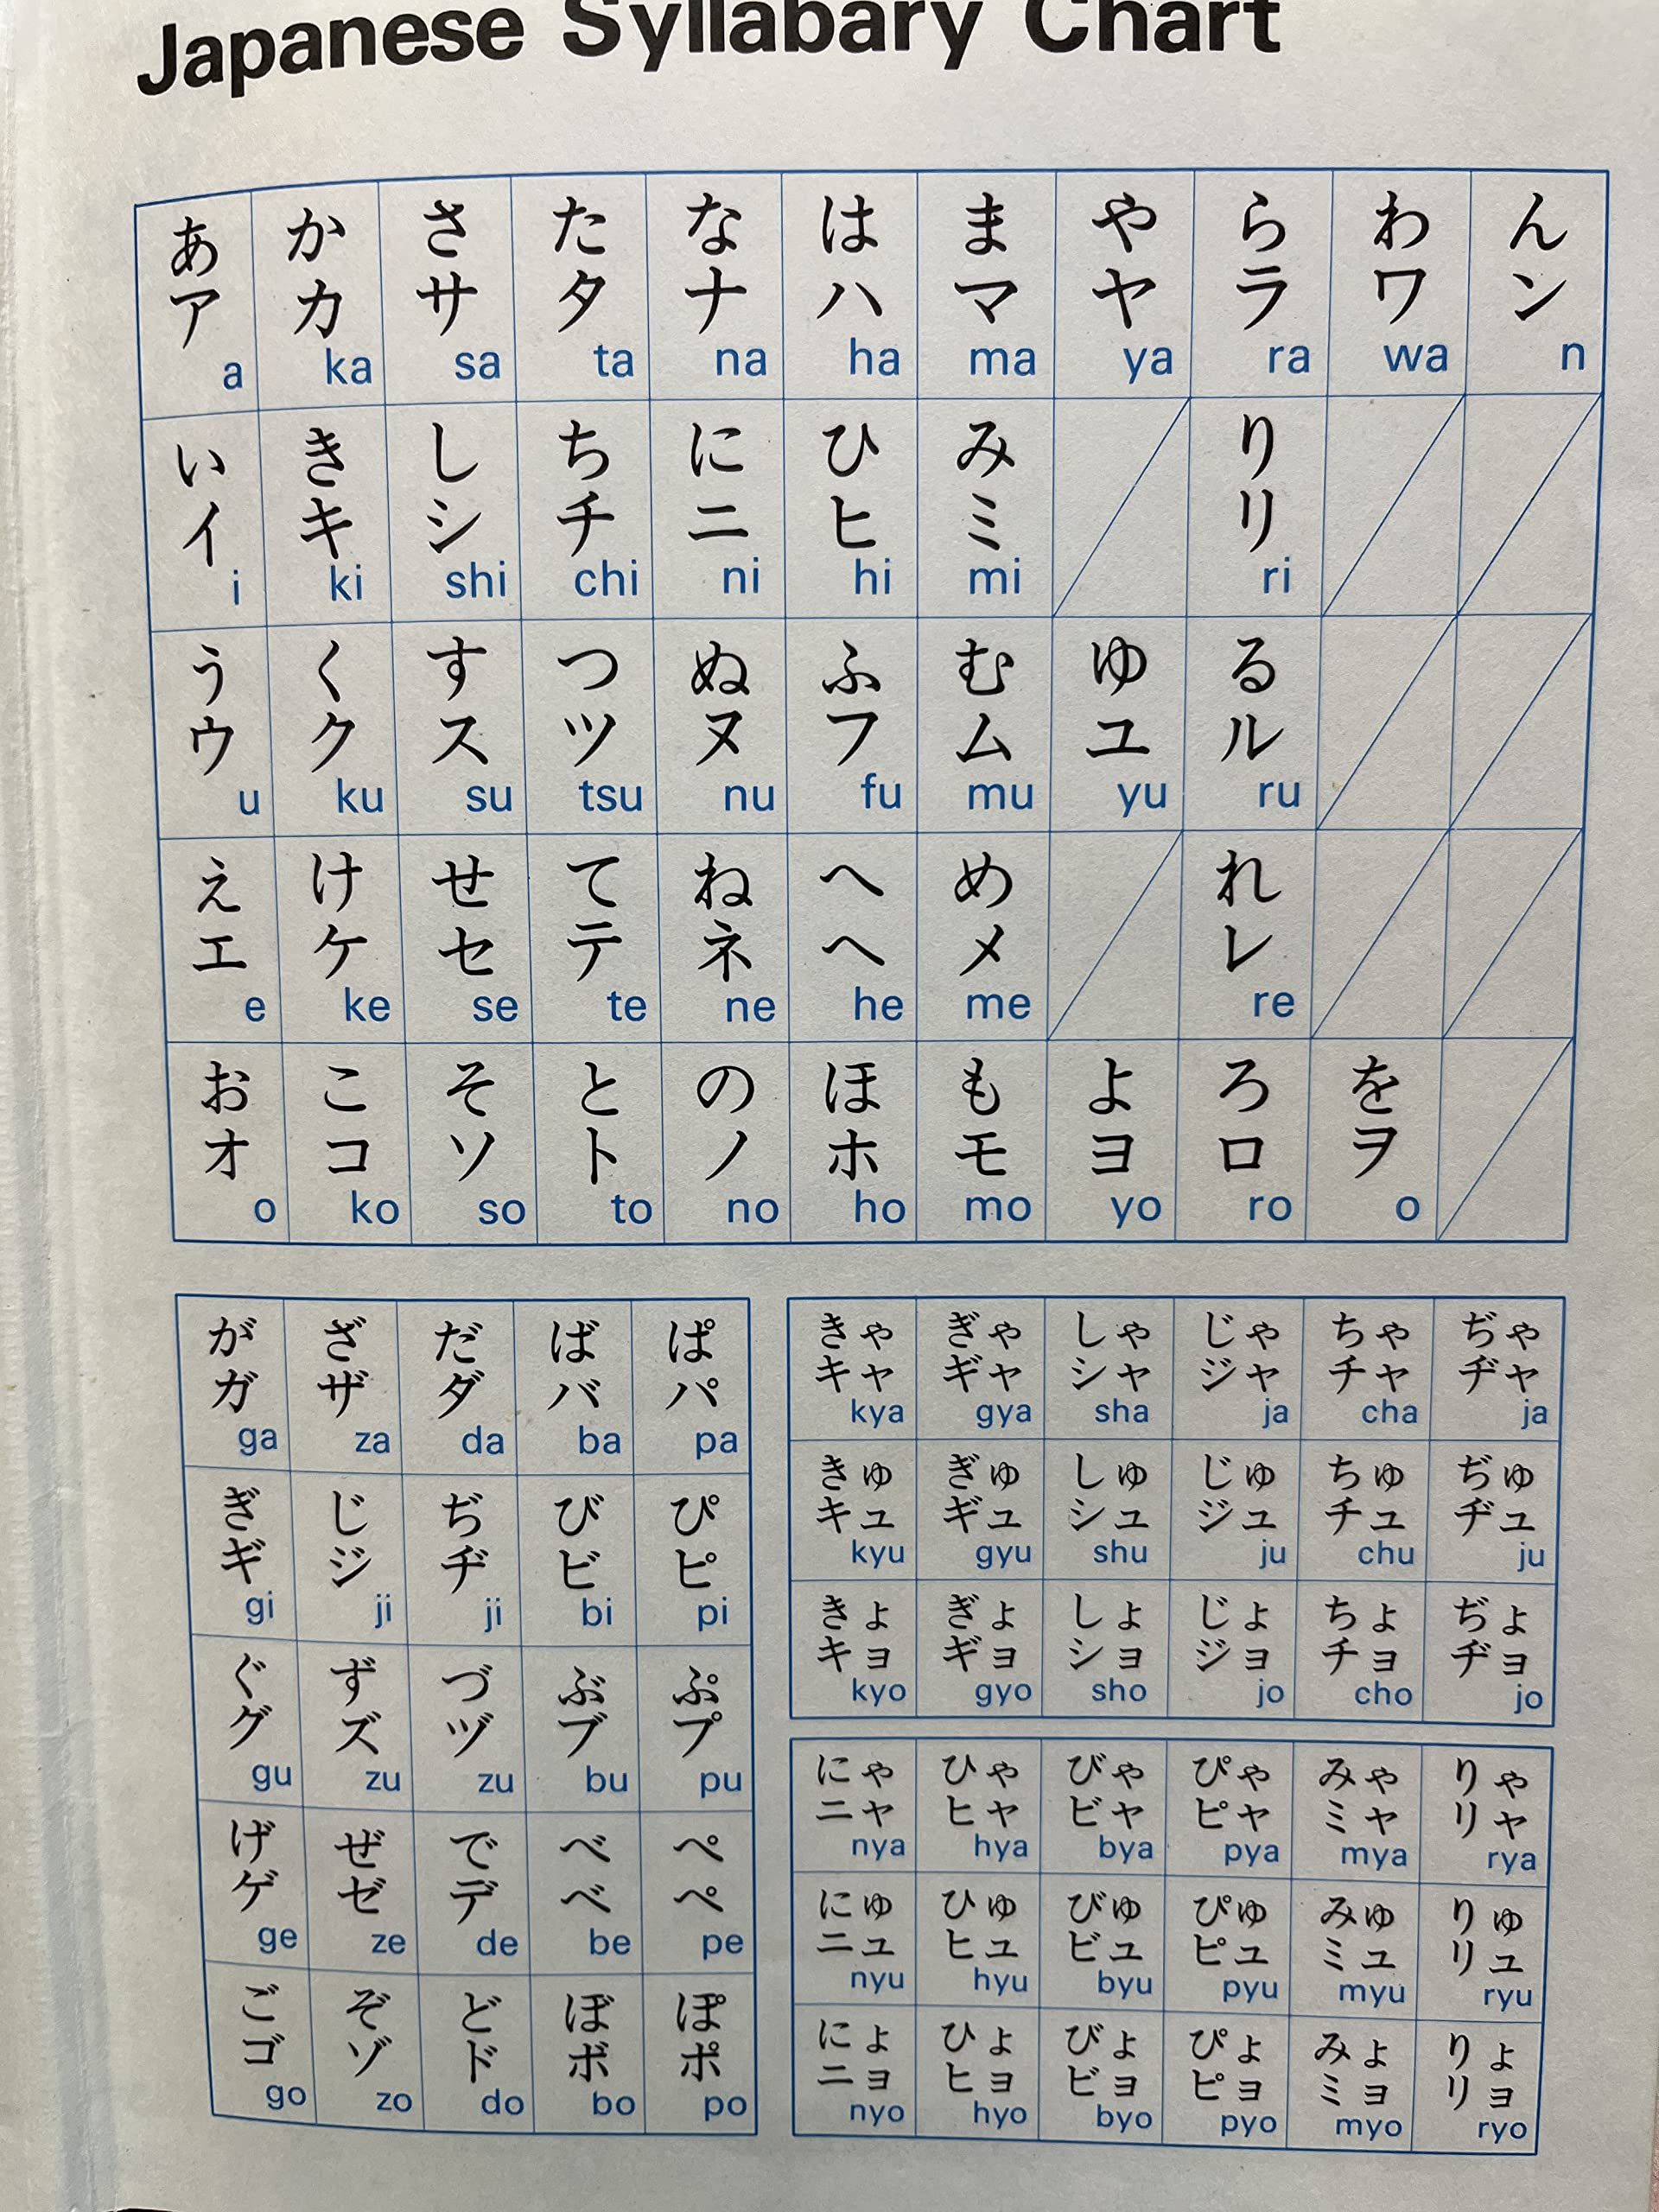 Japanese Syllabary Chart
あ か さ た な は ま や ら わ ん
ア カ サ タ ナ ハ マ ヤ ラ ワ ン
a ka sa ta na ha ma ya ra wa n
い き し ち に ひ み り
イ キ シ チ ニ ヒ ミ リ
i ki shi chi ni hi mi ri
う く す つ ぬ ふ む ゆ る
ウ ク ス ツ ヌ フ ム ユ ル
u ku su tsu nu fu mu yu ru
え け せ て ね へ め れ
エ ケ セ テ ネ ヘ メ レ
e ke se te ne he me re
お こ そ と の ほ も よ ろ を
オ コ ソ ト ノ ホ モ ヨ ロ ヲ
o ko so to no ho mo yo ro o
が ざ だ ば ぱ
ガ ザ ダ バ パ
ga za da ba pa
ぎ じ ぢ び ぴ
ギ ジ ヂ ビ ピ
gi ji ji bi pi
ぐ ず づ ぶ ぷ
グ ズ ヅ ブ プ
gu zu zu bu pu
げ ぜ で べ ぺ
ゲ ゼ デ ベ ペ
ge ze de be pe
ご ぞ ど ぼ ぽ
ゴ ゾ ド ボ ポ
go zo do bo po
きゃ ぎゃ しゃ じゃ ちゃ ぢゃ
キャ ギャ シャ ジャ チャ ヂャ
kya gya sha ja cha ja
きゅ ぎゅ しゅ じゅ ちゅ ぢゅ
キュ ギュ シュ ジュ チュ ヂュ
kyu gyu shu ju chu ju
きょ ぎょ しょ じょ ちょ ぢょ
キョ ギョ ショ ジョ チョ ヂョ
kyo gyo sho jo cho jo
にゃ ひゃ びゃ ぴゃ みゃ りゃ
ニャ ヒャ ビャ ピャ ミャ リャ
nya hya bya pya mya rya
にゅ ひゅ びゅ ぴゅ みゅ りゅ
ニュ ヒュ ビュ ピュ ミュ リュ
nyu hyu byu pyu myu ryu
にょ ひょ びょ ぴょ みょ りょ
ニョ ヒョ ビョ ピョ ミョ リョ
nyo hyo byo pyo myo ryo